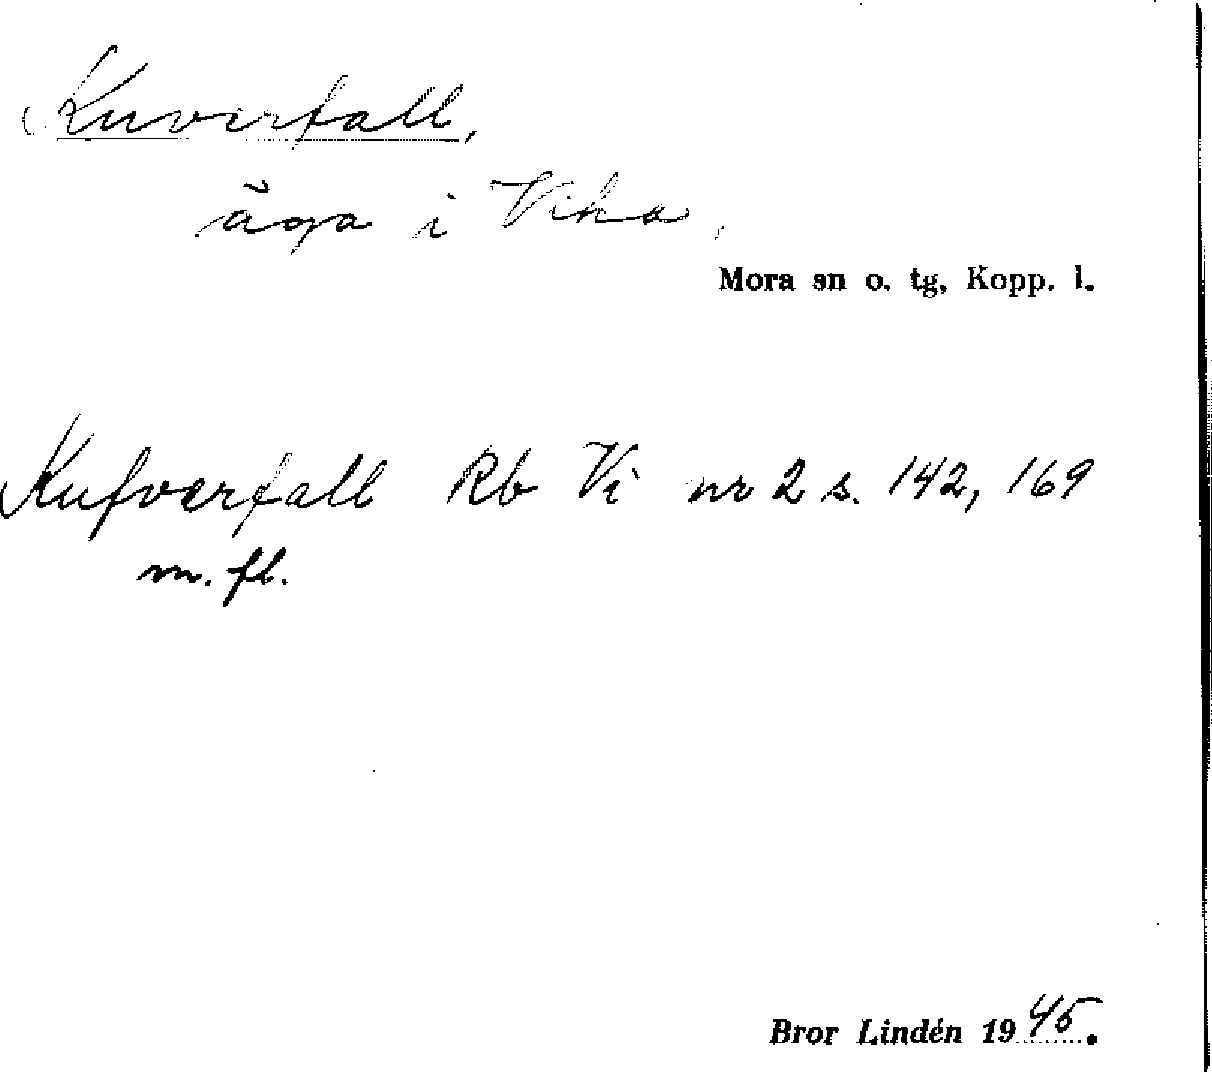 Kuverfall,
äga i Vika,
Mora sn o. tg, Kopp. l.
Kufverfall Rb Vi nr 2 s. 142, 169
m. fl.
Bror Lindén 1945.